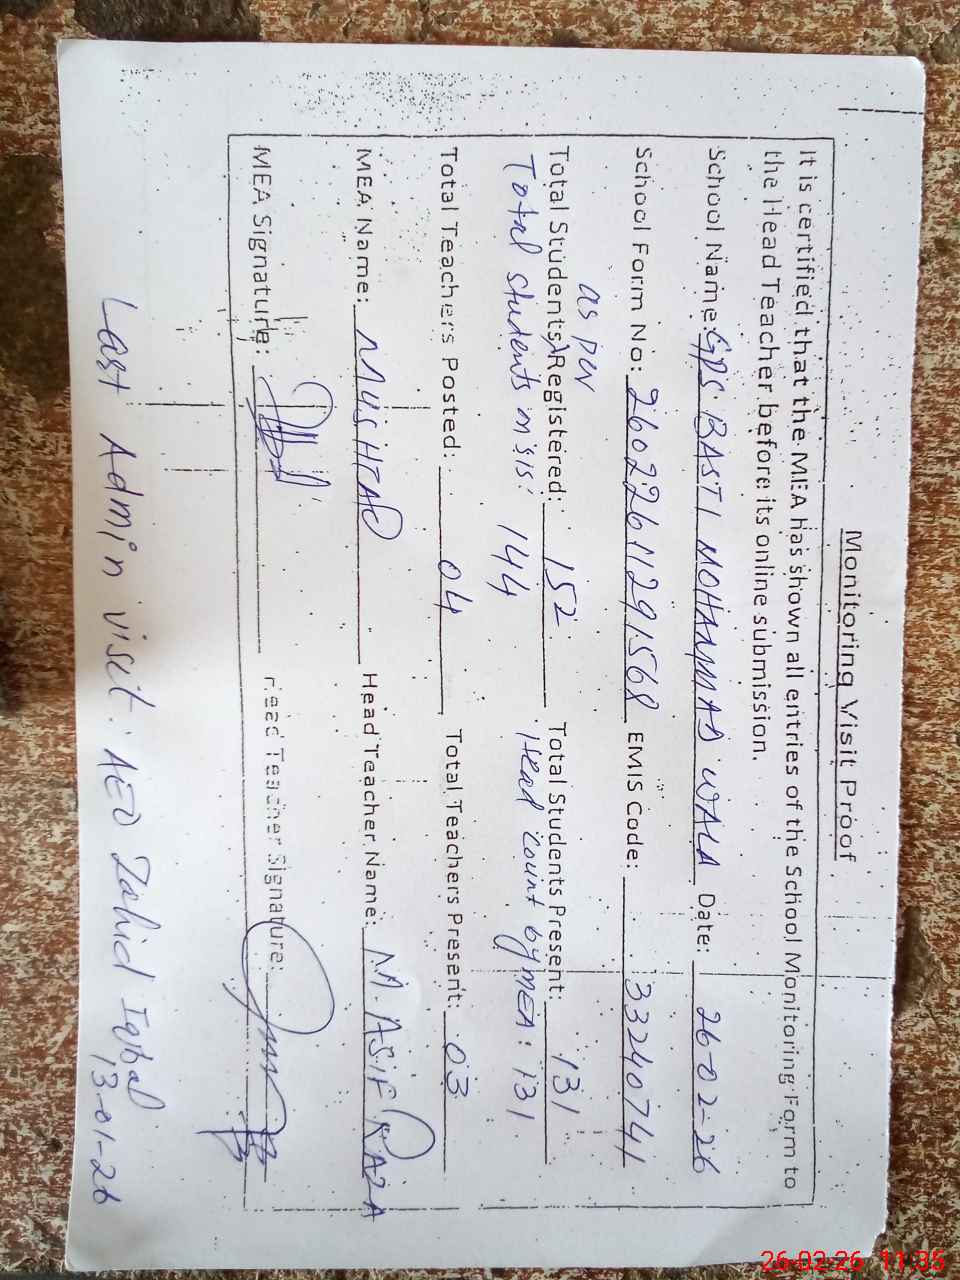 Monitoring Visit Proof
It is certified that the MEA has shown all entries of the School Monitoring Form to
the Head Teacher before its online submission.
School Name: GPS BASTI MOHAMMAD WALA Date: 26-02-26
School Form No: 26022611291568 EMIS Code: 33240741
as per
Total Students Registered: 152 Total Students Present: 131
Total students in sis: 144 Head count by MEA: 131
Total Teachers Posted: 04 Total Teachers Present: 03
MEA Name: MUSHTAQ Head Teacher Name: M. ASIF RAZA
MEA Signature: Head Teacher Signature:
Last Admin visit: AEO Zahid Iqbal
13-01-26
26-02-26 11:35